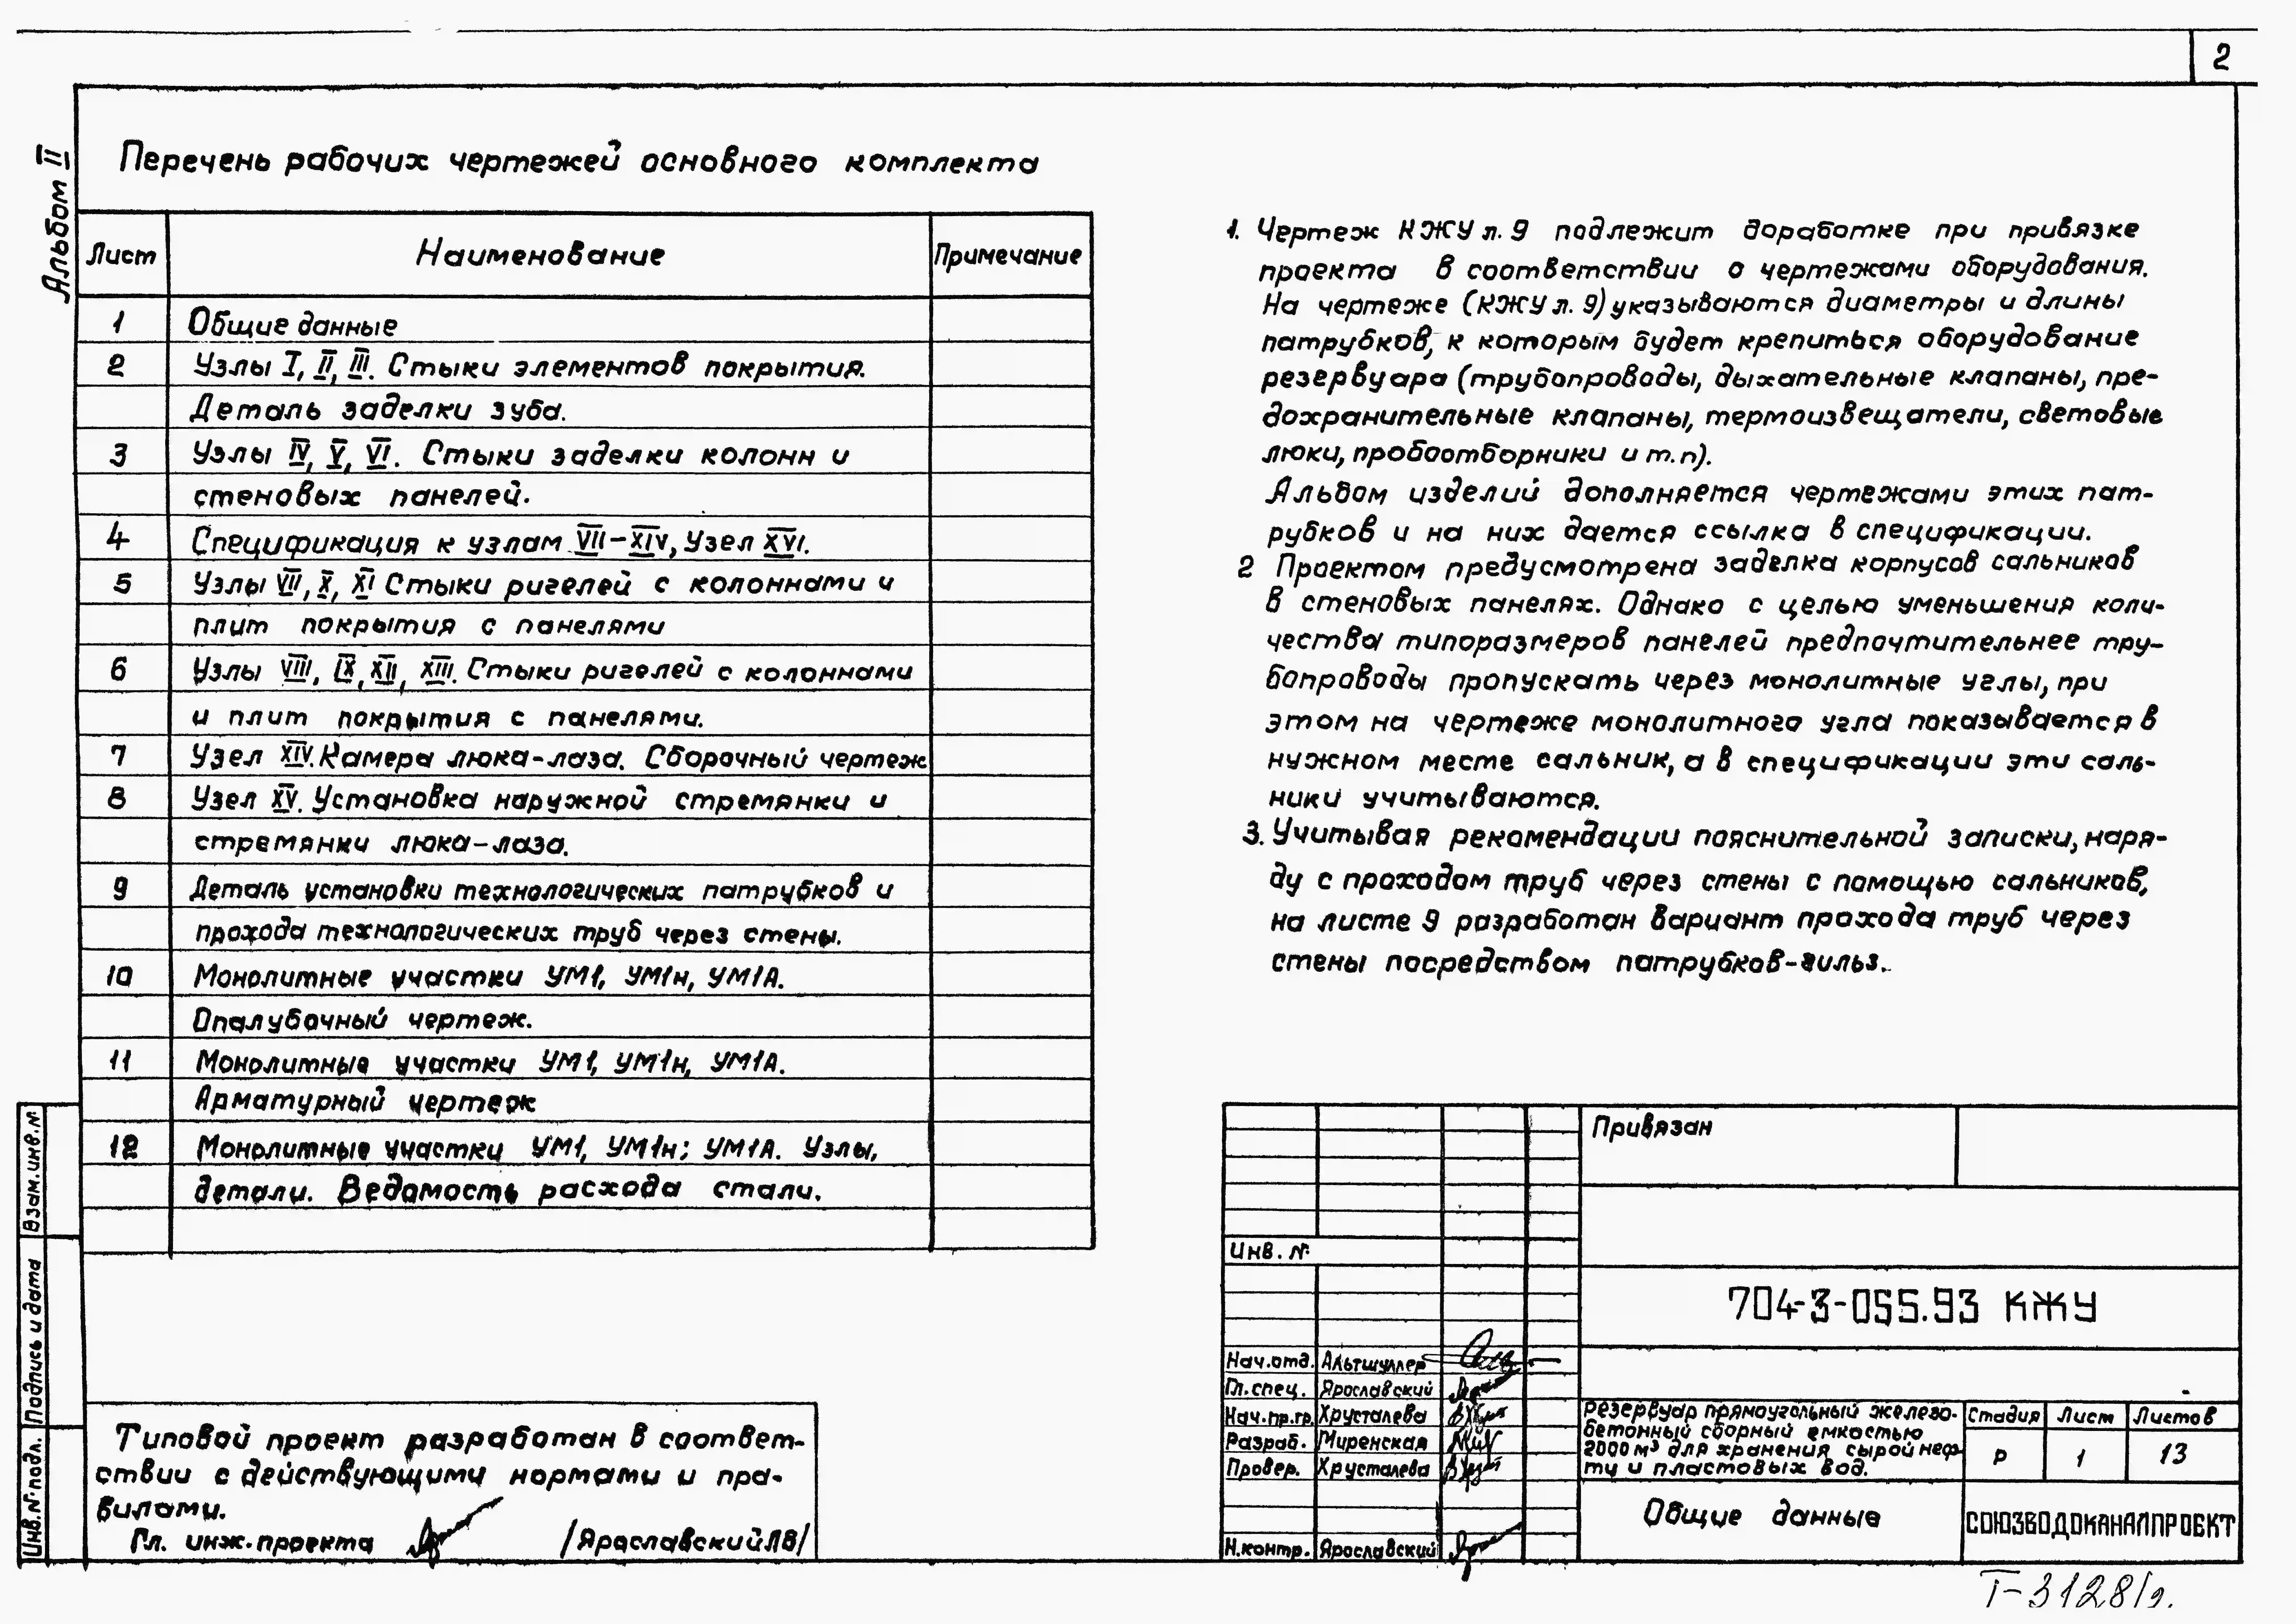 2
Альбом II
Перечень рабочих чертежей основного комплекта
Лист Наименование Примечание
1 Общие данные
2 Узлы I, II, III. Стыки элементов покрытия.
Деталь заделки зуба.
3 Узлы IV, V, VI. Стыки заделки колонн и
стеновых панелей.
4 Спецификация к узлам VII-XIV, Узел XVI.
5 Узлы VII, X, XI Стыки ригелей с колоннами и
плит покрытия с панелями
6 Узлы VIII, IX, XII, XIII. Стыки ригелей с колоннами
и плит покрытия с панелями.
7 Узел XIV. Камера люка-лаза. Сборочный чертеж
8 Узел XV. Установка наружной стремянки и
стремянки люка-лаза.
9 Деталь установки технологических патрубков и
прохода технологических труб через стены.
10 Монолитные участки УМ1, УМ1н, УМ1А.
Опалубочный чертеж.
11 Монолитные участки УМ1, УМ1н, УМ1А.
Арматурный чертеж
12 Монолитные участки УМ1, УМ1н; УМ1А. Узлы,
детали. Ведомость расхода стали.
1. Чертеж КЖУ л. 9 подлежит доработке при привязке
проекта в соответствии с чертежами оборудования.
На чертеже (КЖУ л. 9) указываются диаметры и длины
патрубков, к которым будет крепиться оборудование
резервуара (трубопроводы, дыхательные клапаны, пре-
дохранительные клапаны, термоизвещатели, световые
люки, пробоотборники и т.п).
Альбом изделий дополняется чертежами этих пат-
рубков и на них дается ссылка в спецификации.
2 Проектом предусмотрена заделка корпусов сальников
в стеновых панелях. Однако с целью уменьшения коли-
чества типоразмеров панелей предпочтительнее тру-
бопроводы пропускать через монолитные углы, при
этом на чертеже монолитного угла показывается в
нужном месте сальник, а в спецификации эти саль-
ники учитываются.
3. Учитывая рекомендации пояснительной записки, наря-
ду с проходом труб через стены с помощью сальников,
на листе 9 разработан вариант прохода труб через
стены посредством патрубков-гильз.
Взам. инв. №
Подпись и дата
Инв. № подл.
Типовой проект разработан в соответ-
ствии с действующими нормами и пра-
вилами.
Гл. инж. проекта /Ярославский Л В/
Привязан
Инв. №
704-3-055.93 КЖУ
Нач. отд. Альтшуллер
Гл. спец. Ярославский
Нач. пр. гр. Хрусталева
Разраб. Миренская
Провер. Хрусталева
Н. контр. Ярославский
Резервуар прямоугольный железо-
бетонный сборный емкостью
2000 м³ для хранения сырой неф-
ти и пластовых вод.
Стадия Лист Листов
Р 1 13
Общие данные
СОЮЗВОДОКАНАЛПРОЕКТ
Т-3128/2.